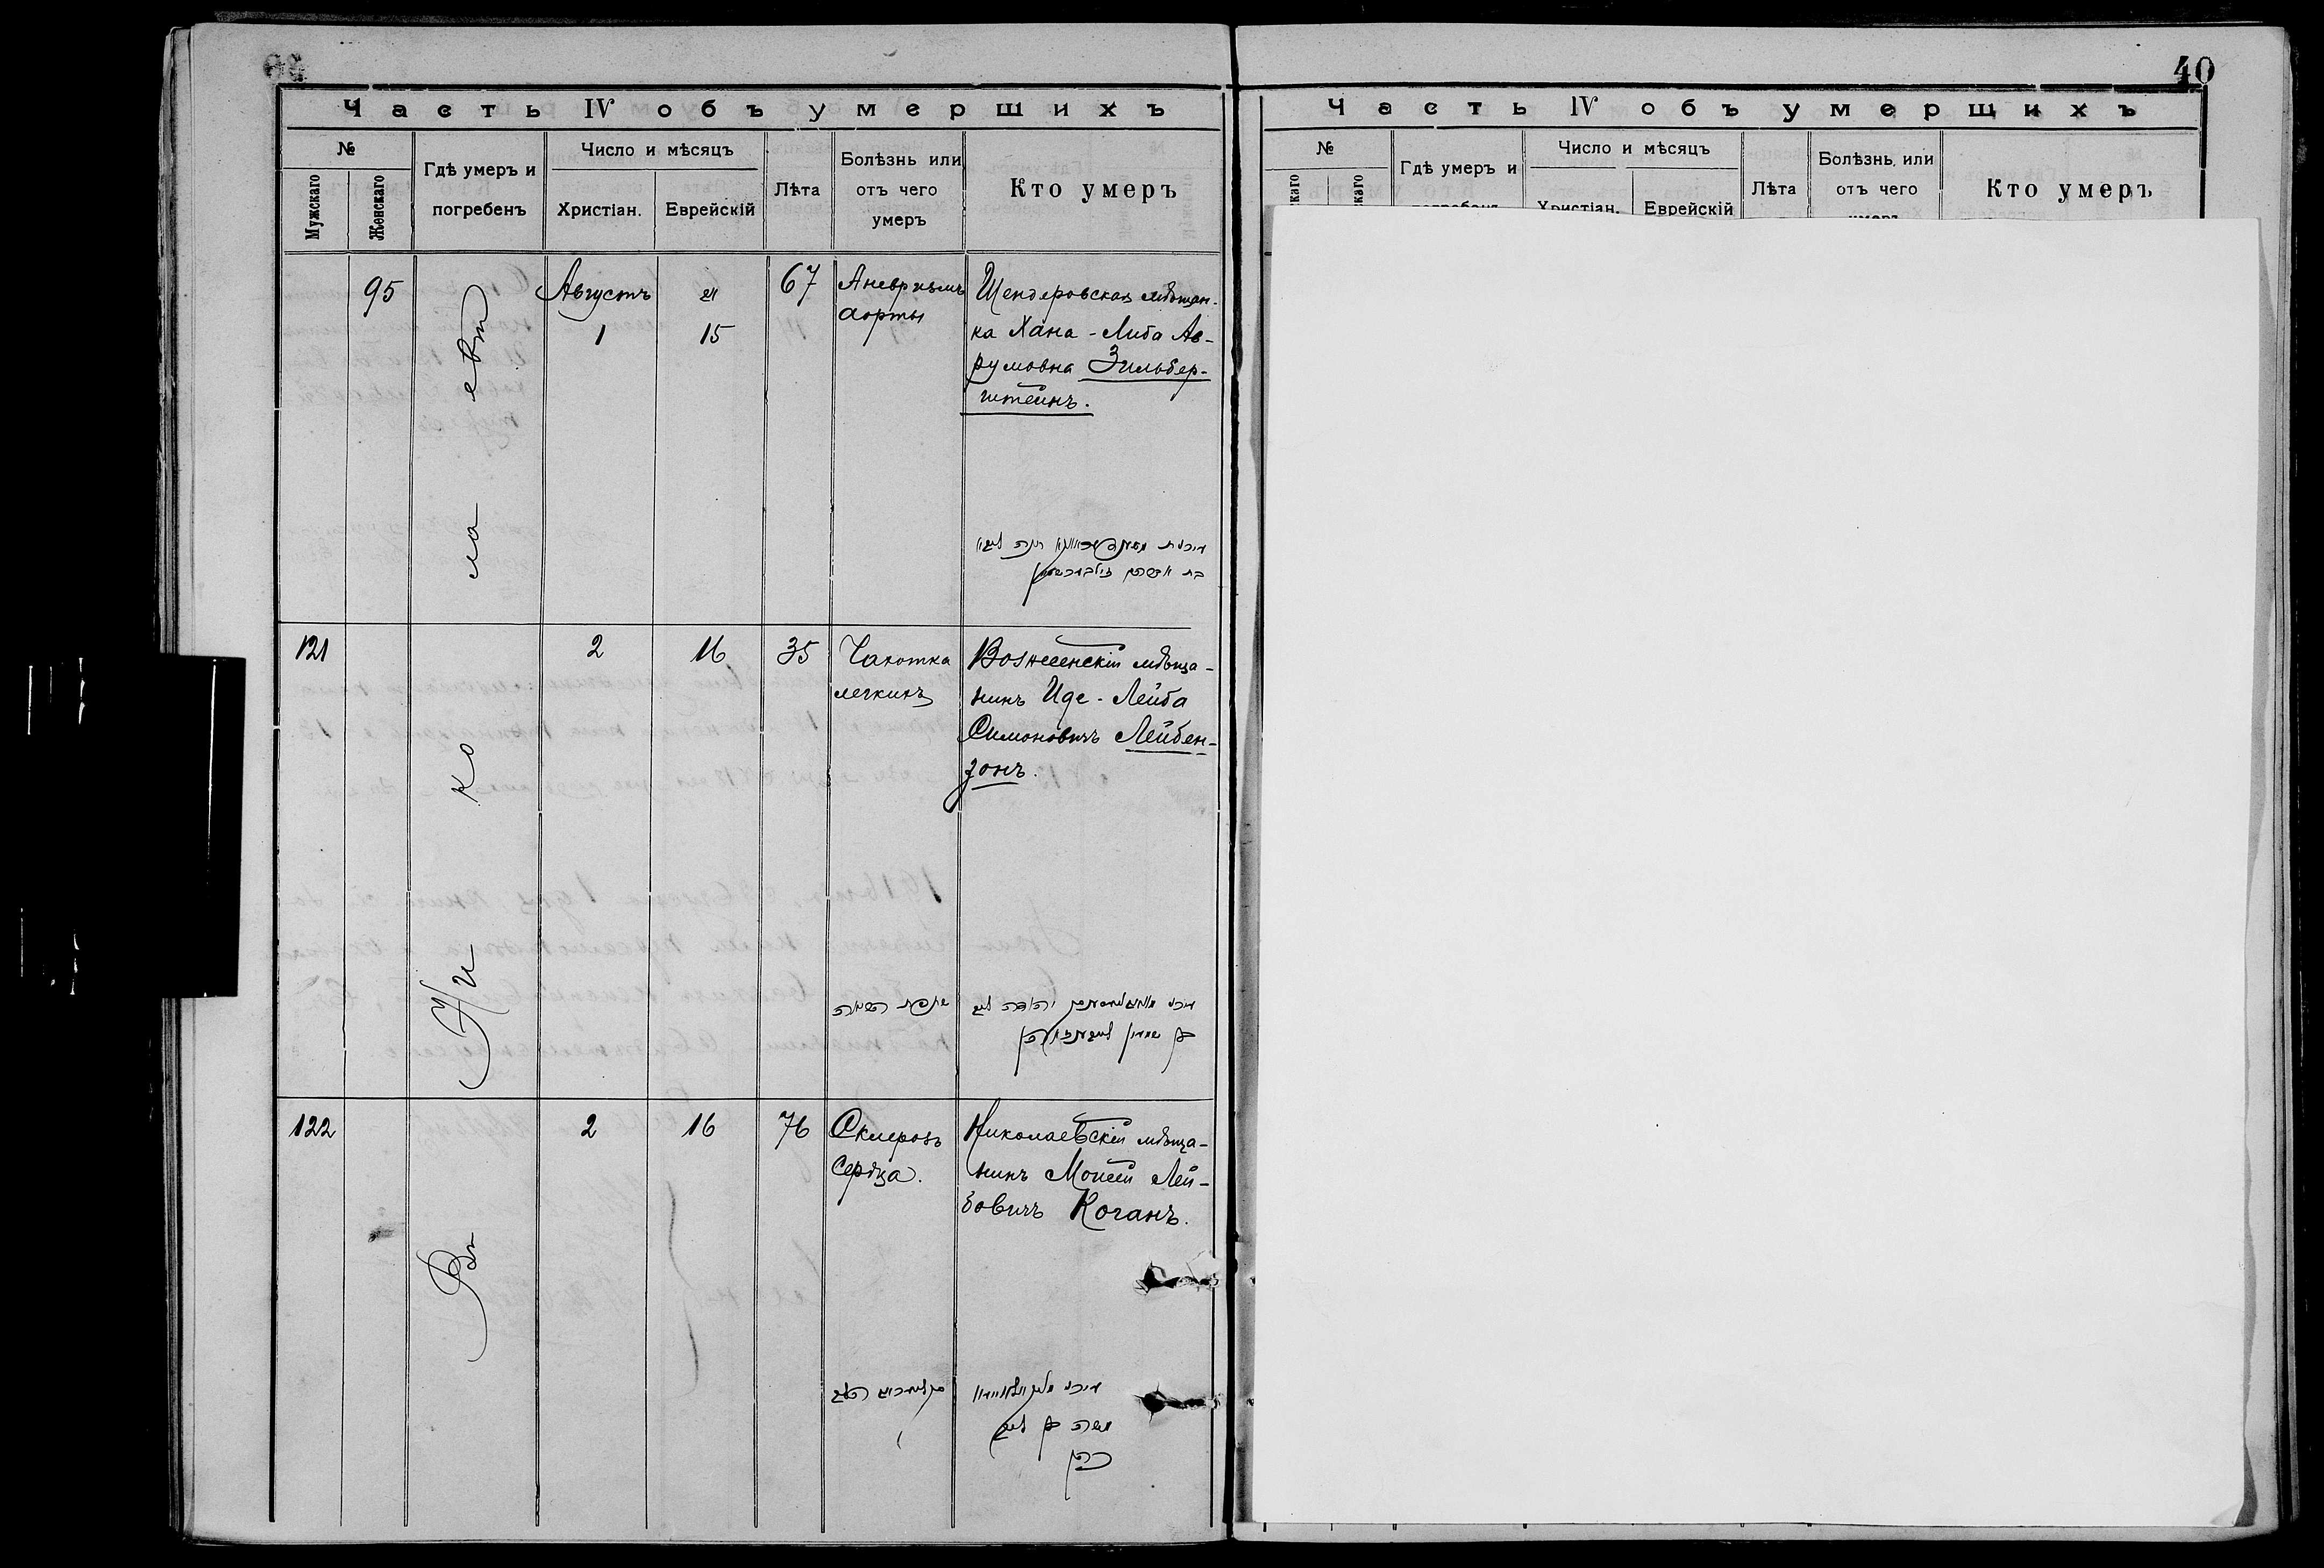 40
Часть IV объ умершихъ
№
Мужскаго
Женскаго
Гдѣ умеръ и
погребенъ
Число и мѣсяцъ
Христіан.
Еврейскій
Лѣта
Болѣзнь или
отъ чего
умеръ
Кто умеръ
Въ Николаевѣ
95
Августъ
1
15
67
Аневризмъ
аорты
Шендеровская мѣщан-
ка Хана-Либа Ав-
румовна Зильбер-
штейнъ.
121
2
16
35
Чахотка
легкихъ
Вознесенскій мѣща-
нинъ Иде-Лейба
Симоновичъ Лейбен-
зонъ.
122
2
16
76
Склерозъ
сердца.
Николаевскій мѣща-
нинъ Моисей Лей-
бовичъ Коганъ.
משה בן ליב
כהן
Часть IV объ умершихъ
№
Гдѣ умеръ и
Число и мѣсяцъ
Христіан.
Еврейскій
Лѣта
Болѣзнь или
отъ чего
умеръ
Кто умеръ